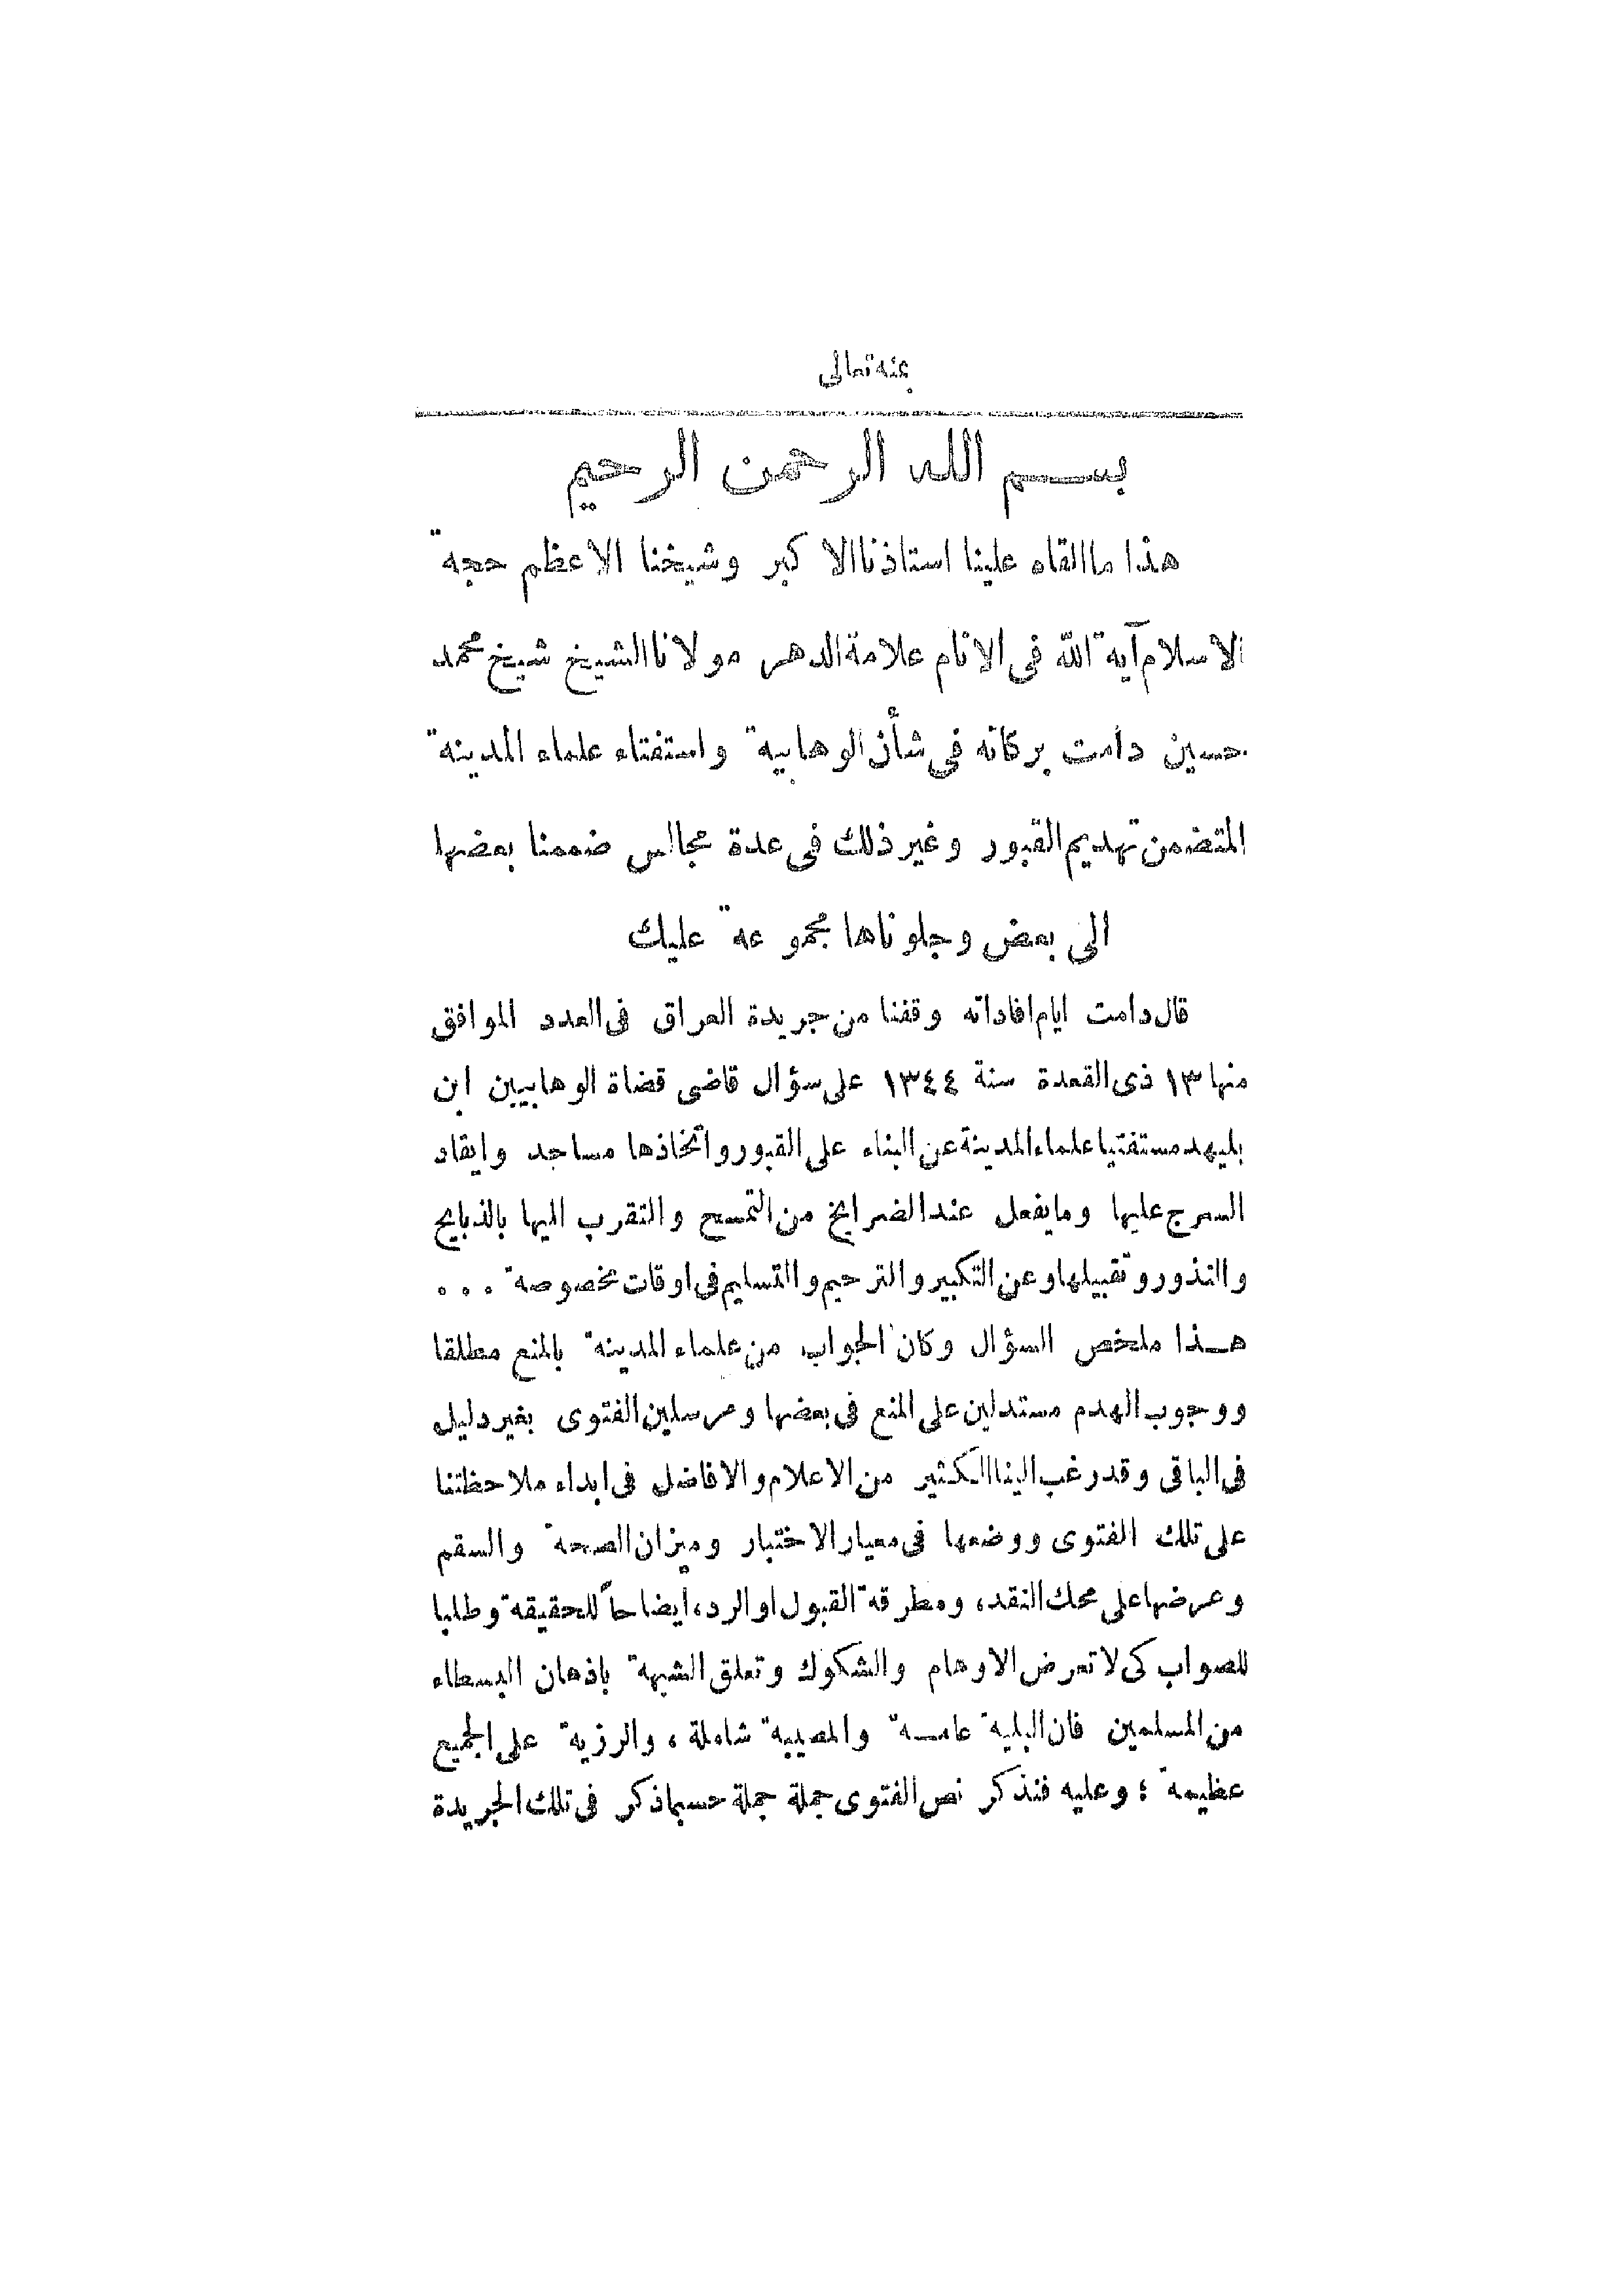 بمنه تعالى
بسم الله الرحمن الرحيم
هذا ما القاه علينا استاذنا الاكبر وشيخنا الاعظم حجة
الاسلام آية الله فى الانام علامة الدهر مولانا الشيخ شيخ محمد
حسين دامت بركاته فى شأن الوهابية واستفتاء علماء المدينة
المتضمن تهديم القبور وغير ذلك فى عدة مجالس ضممنا بعضها
الى بعض وجلوناها مجموعة عليك
قال دامت ايام افاداته وقفنا من جريدة العراق فى العدد الموافق
منها ١٣ ذى القعدة سنة ١٣٤٤ على سؤال قاضى قضاة الوهابيين ابن
بليهد مستفتيا علماء المدينة عن البناء على القبور واتخاذها مساجد وايقاد
السرج عليها وما يفعل عند الضرايح من التمسح والتقرب اليها بالذبايح
والنذور وتقبيلها وعن التكبير والترحيم والتسليم فى اوقات مخصوصة . . .
هـذا ملخص السؤال وكان الجواب من علماء المدينة بالمنع مطلقا
ووجوب الهدم مستدلين على المنع فى بعضها ومرسلين الفتوى بغير دليل
فى الباقى وقد رغب الينا الكثير من الاعلام والافاضل فى ابداء ملاحظتنا
على تلك الفتوى ووضعها فى معيار الاختبار وميزان الصحة والسقم
وعرضها على محك النقد، ومطرقة القبول او الرد، ايضاحاً للحقيقة وطلبا
للصواب كى لا تعرض الاوهام والشكوك وتعلق الشبهة باذهان البسطاء
من المسلمين فان البلية عامـة والمصيبة شاملة، والرزية على الجميع
عظيمة ؛ وعليه فنذكر نص الفتوى جملة جملة حسبما ذكر فى تلك الجريدة